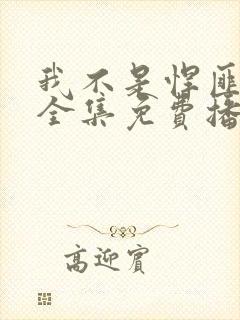 我不是悍匪
全集免費播
高迎賓